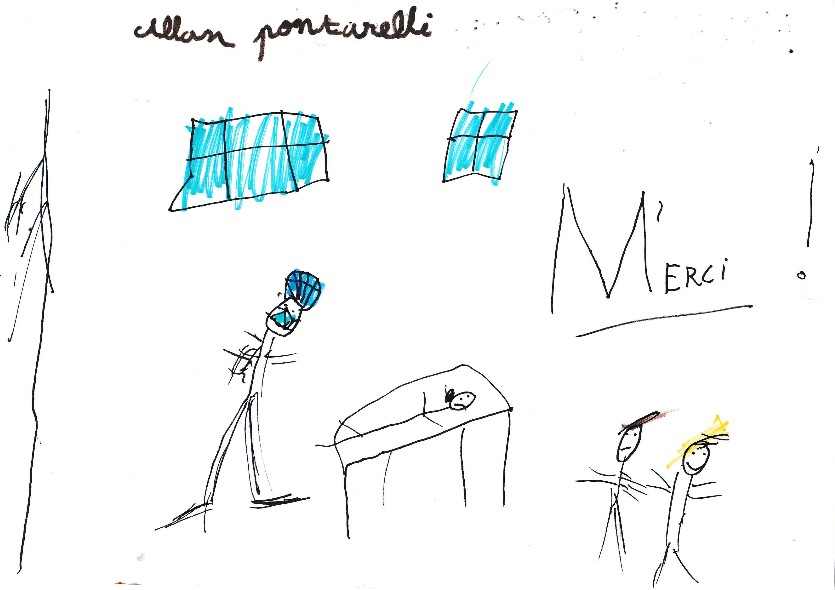 Allan pontarelli
MERCi !